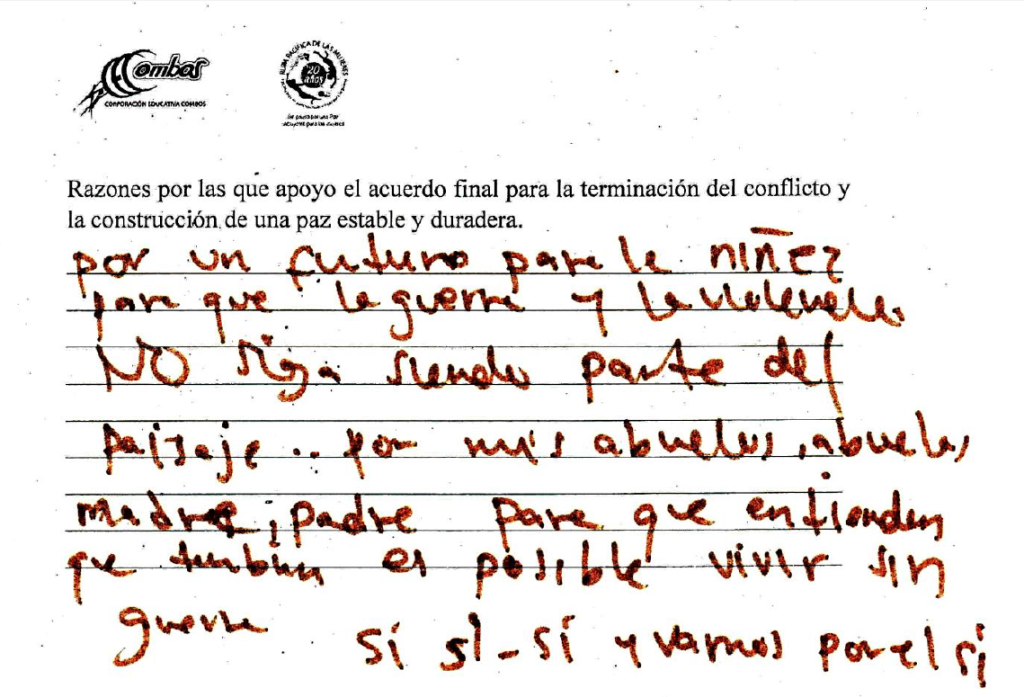 Combos
CORPORACIÓN EDUCATIVA COMBOS
RUTA PACÍFICA DE LAS MUJERES
20 años
Razones por las que apoyo el acuerdo final para la terminación del conflicto y
la construcción de una paz estable y duradera.
por un futuro para la niñez
para que la guerra y la violencia
NO siga siendo parte del
paisaje .. por mis abuelos, abuelas
madre, padre para que entienden
que tambien es posible vivir sin
guerra sí sì - sí y vamos por el si